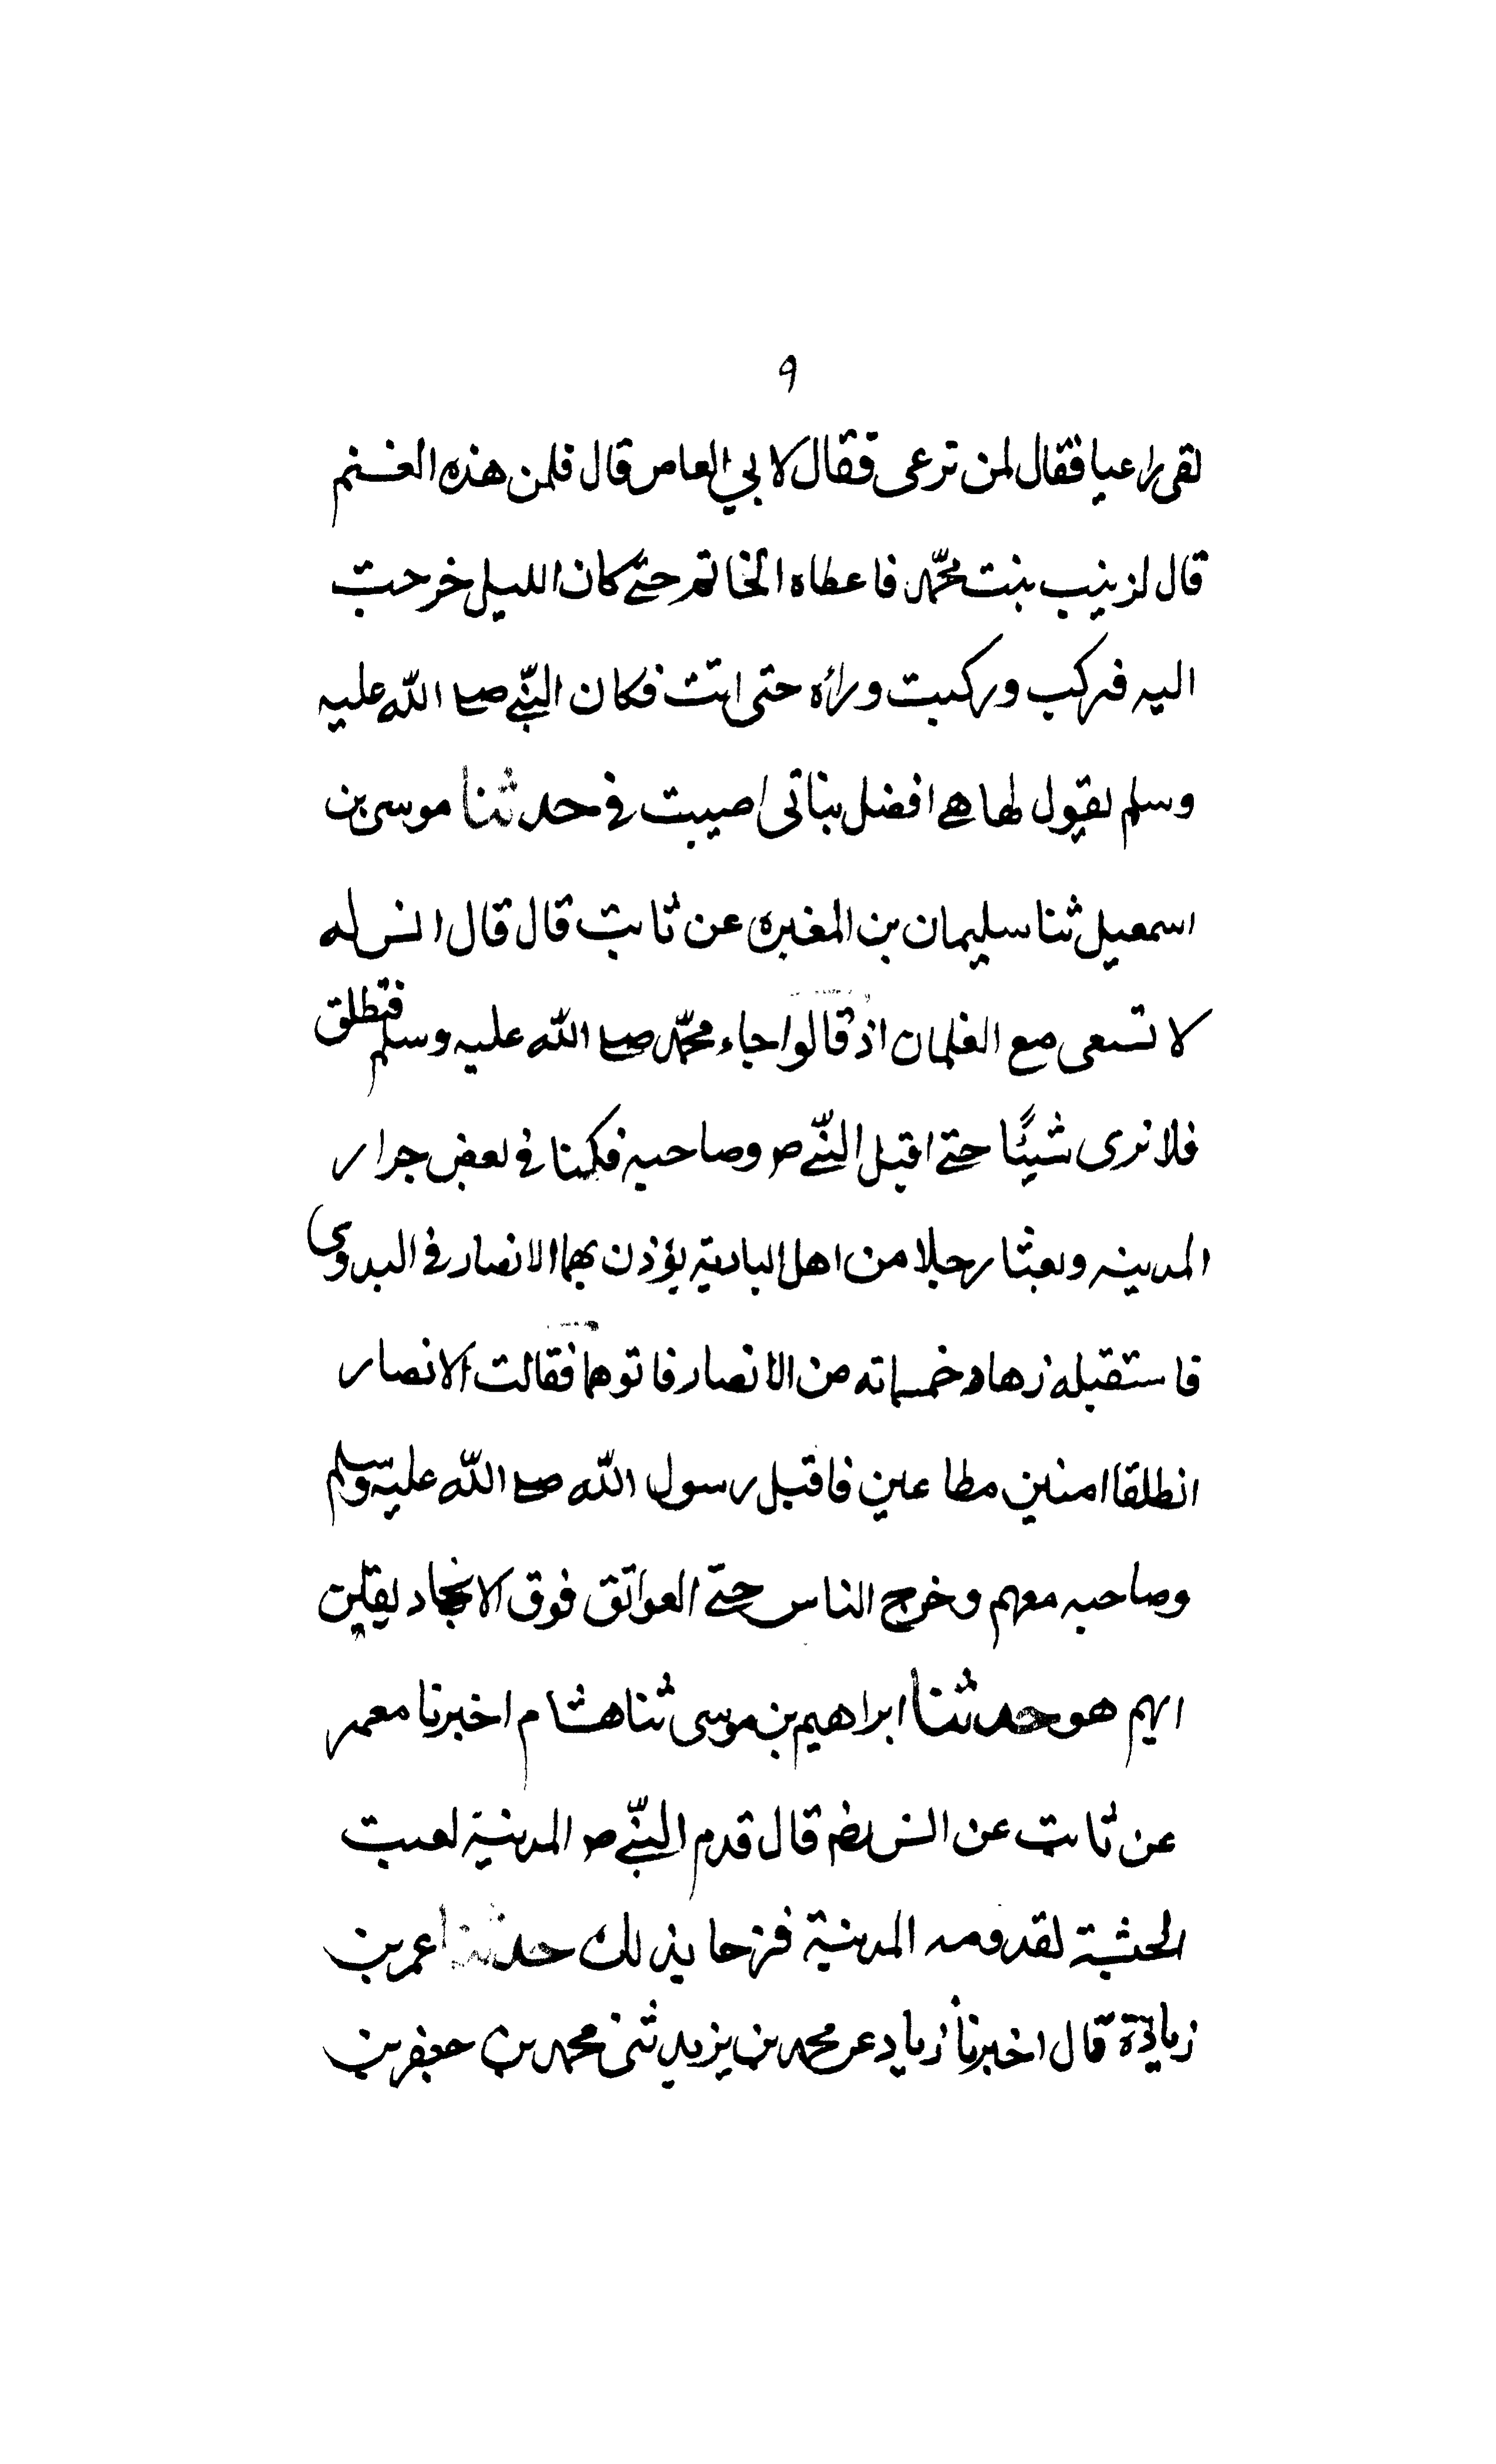 ٩
لقى راعيا فقال لمن ترعى فقال لابي العاص قال فلمن هذه الغنم
قال لزينب بنت محمّد فاعطاه الخاتم حتى كان الليل خرجت
اليه فركب وركبت وراءه حتى اتت فكان النبّي صلى اللّه عليه
وسلم يقول لها هي افضل بناتى اصيبت في حدثنا موسى بن
اسمعيل ثنا سليمان بن المغيره عن ثابت قال قال انس له
لا تسعى مع الغلمان اذ قالوا جاء محمّد صلى اللّه عليه وسلم فتطلق
فلا نرى شيئًا حتى اقبل النبّي ص وصاحبه فكمنا في بعض جرار
المدينه وبعثا رجلا من اهل البادية يؤذن بهما الانصار في البدوى
فاستقبله زهاد خمسماته من الانصار فاتوهما فقالت الانصار
انطلقا امنين مطاعين فاقبل رسول اللّه صلى اللّه عليه وسلم
وصاحبه معهم وخرج الناس حتى العواتق فوق الانجاد يقلين
ايهم هو حدثنا ابراهيم بن موسى ثنا هشام اخبرنا معمر
عن ثابت عن انس رضه قال قدم النبّي ص المدينة لعبت
الحبشة لقدومه المدينة فرحا بذلك حدثنا عمر بن
زيادة قال اخبرنا زياد عن محمد بن يزيد ثنى محمد بن جعفر بن